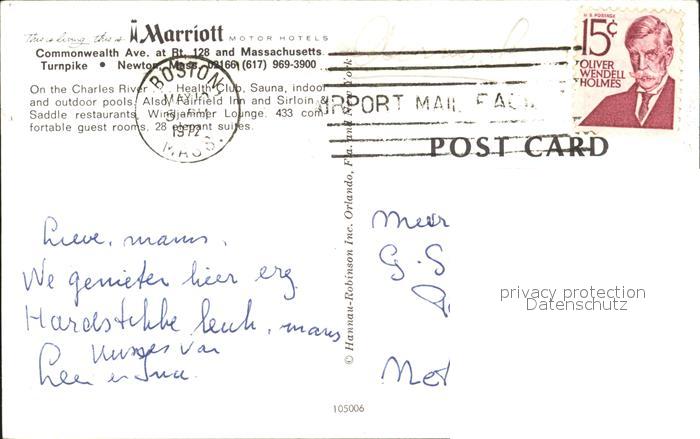 this is living, this is Marriott MOTOR HOTELS
Commonwealth Ave. at Rt. 128 and Massachusetts
Turnpike • Newton, Mass. 02166 (617) 969-3900
On the Charles River . . . Health Club, Sauna, indoor
and outdoor pools. Also, Fairfield Inn and Sirloin &
Saddle restaurants, Windjammer Lounge. 433 com-
fortable guest rooms, 28 elegant suites.
BOSTON
MAY
PM
1972
MASS.
AIRPORT MAIL
U.S. POSTAGE
15¢
OLIVER
WENDELL
HOLMES
POST CARD
© Hannau-Robinson Inc. Orlando, Fla. and New York
Lieve, mams,
We genieten hier erg.
Hardstikke leuk, mams
Kusjes van
en
G. S
privacy protection
Datenschutz
105006